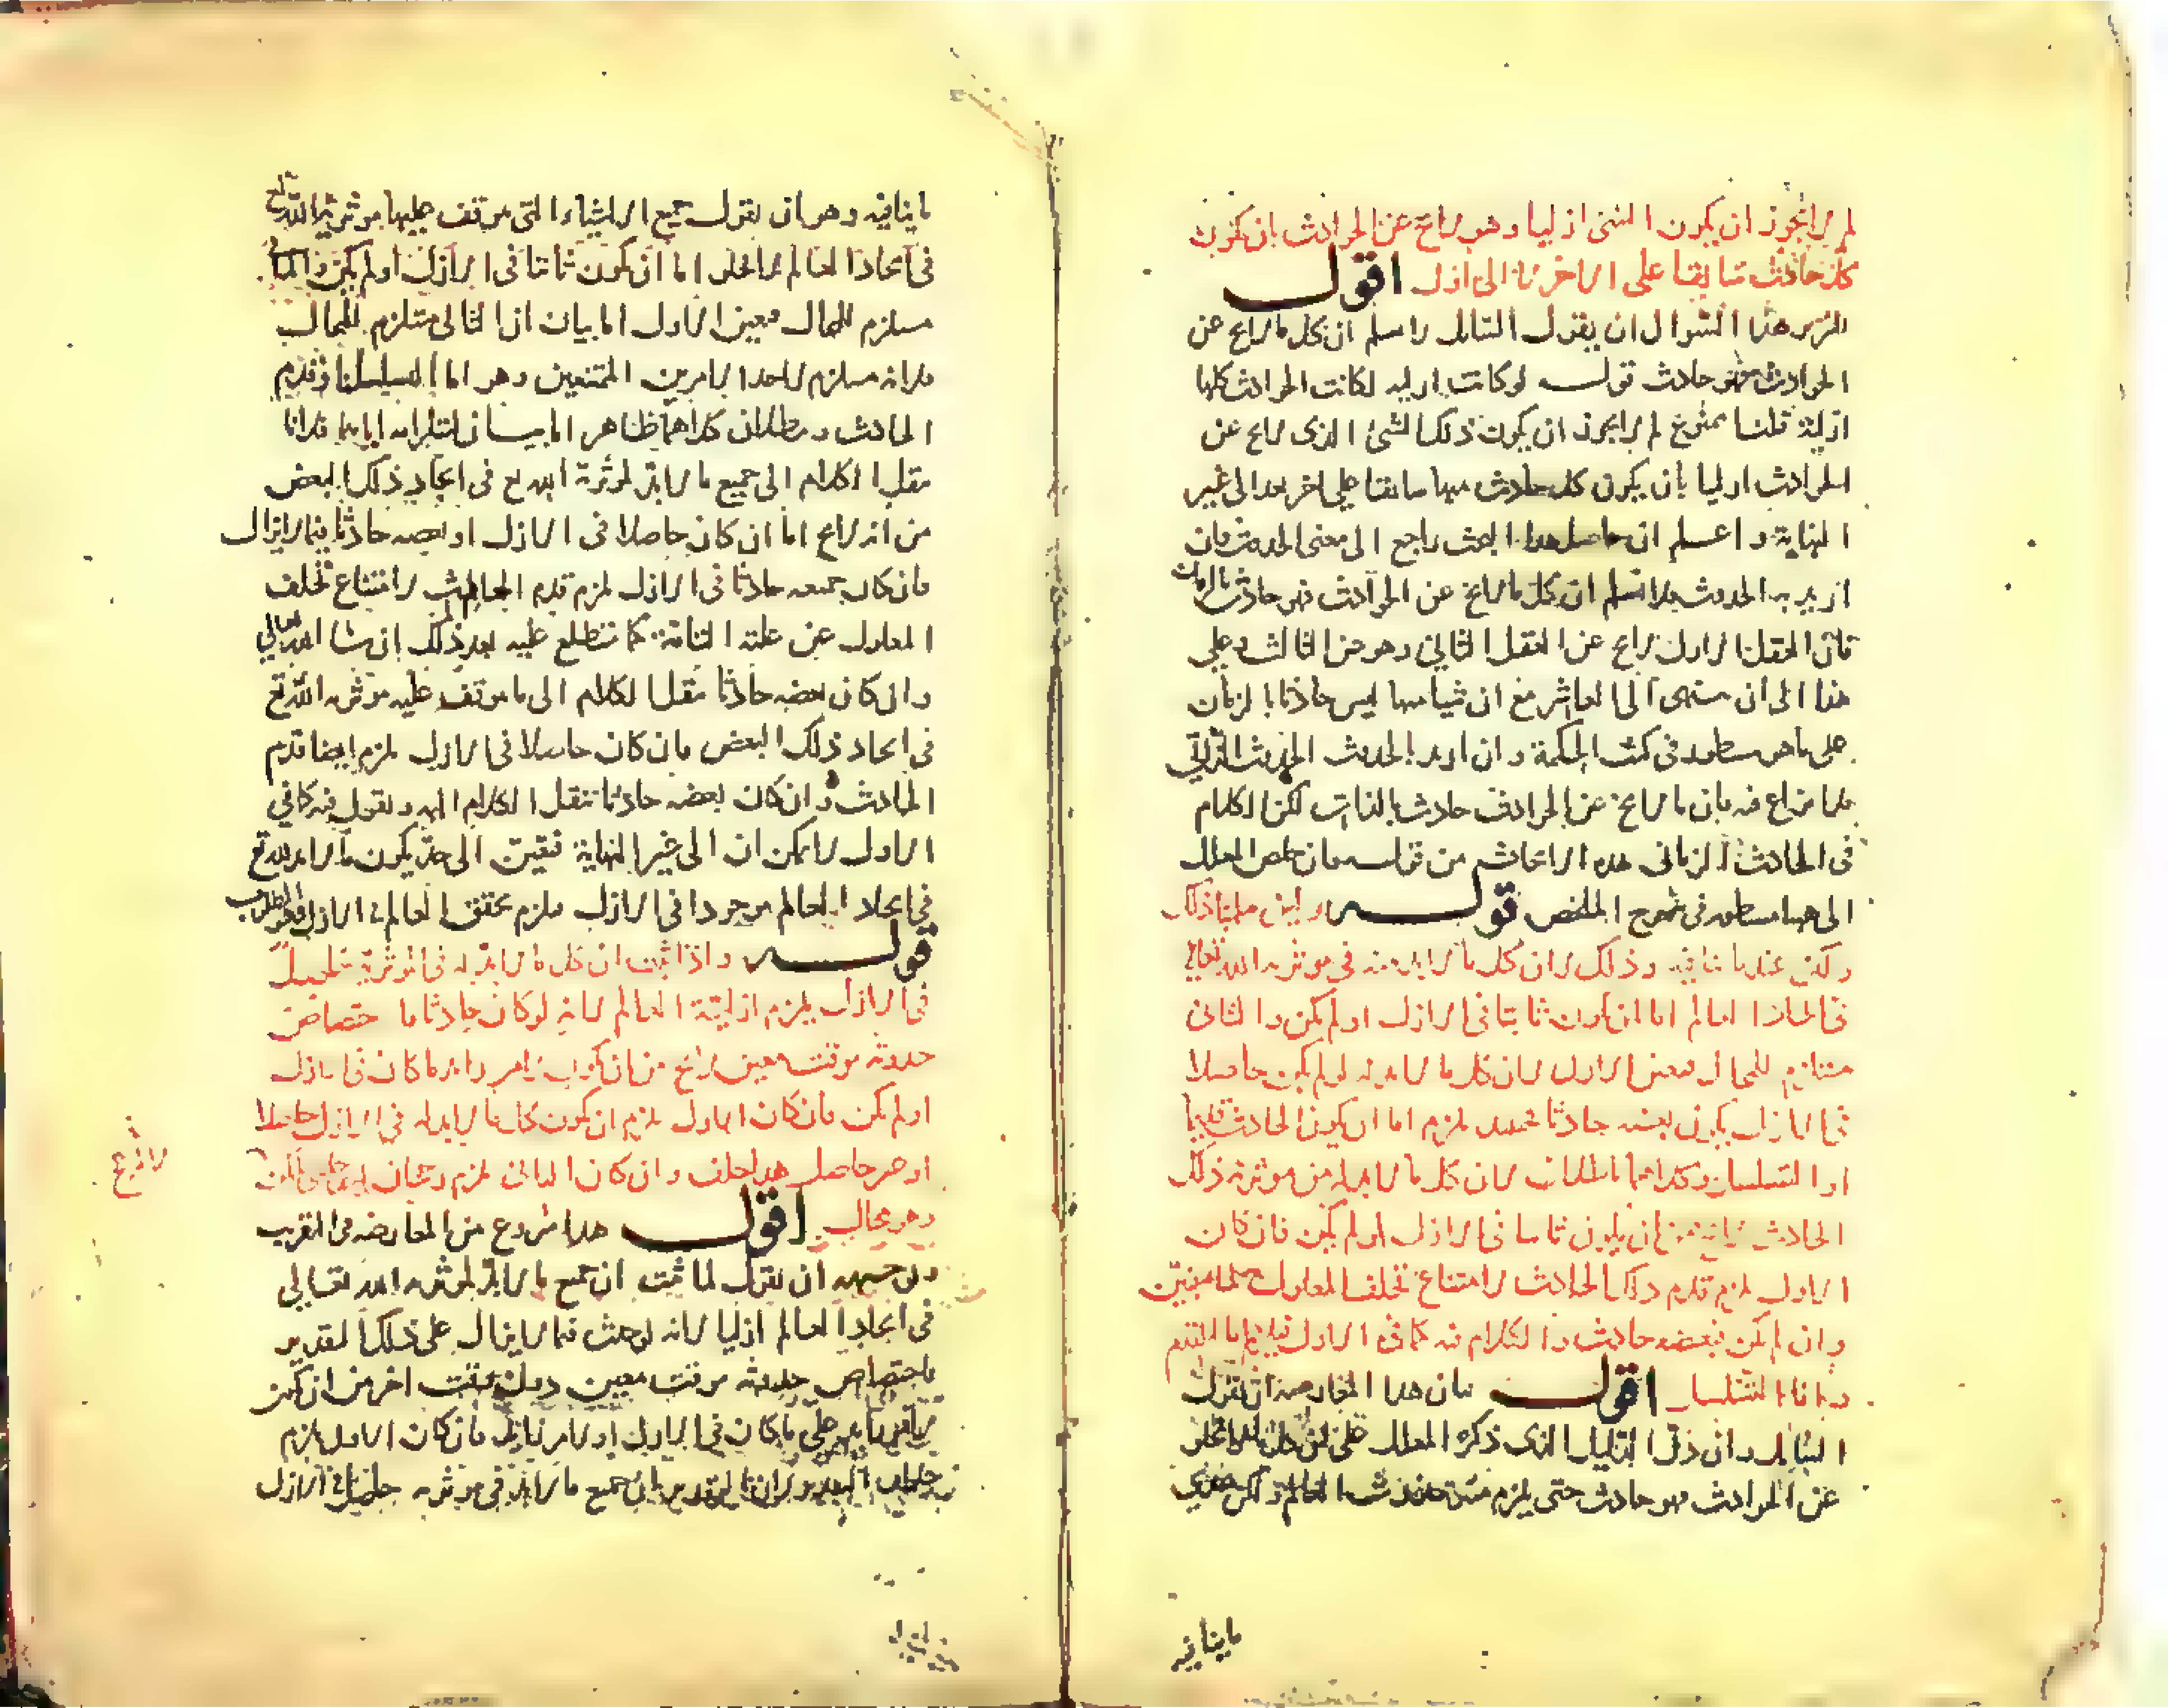 لم لا يجوز ان يكون الشئ ازليا وهو لا يخ عن الحوادث بان يكون
كل حادث سابقا على الاخر لا الى اول اقول
تقرير هذا السؤال ان يقول القائل لا نسلم ان كل ما لا يخ عن
الحوادث فهو حادث قوله لو كانت ازلية لكانت الحوادث كلها
ازلية قلنا ممنوع لم لا يجوز ان يكون ذلك الشئ الذى لا يخ عن
الحوادث ازليا بان يكون كل حادث منها سابقا على اخر بعد الى غير
النهاية واعلم ان حاصل هذا البحث راجع الى معنى الحدوث فان
اريد به الحدوث فلا نسلم ان كل ما لا يخ عن الحوادث فهو حادث بالزمان
فان العقل الاول لا يخ عن العقل الثانى وهو عن الثالث وعلى
هذا الى ان ينتهى الى العاشر مع ان شيا منها ليس حادثا بالزمان
على ما هو مسطور فى كتب الحكمة وان اريد بالحدوث الحدوث الذاتى
فلا نزاع فيه فان ما لا يخ عن الحوادث حادث بالذات لكن الكلام
فى الحادث الزمانى هذه
الى هنا مسطور فى شرح الملخص قوله ولئن سلمنا ذلك
ولكن عندنا ما ينافيه وذلك لان كل ما لا بد منه فى موثرية الله تعالى
فى ايجاد العالم اما ان يكون ثابتا فى الازل او لم يكن والثانى
مستلزم للمحال فتعين الاول لان كل ما لا بد منه لو لم يكن حاصلا
فى الازل يكون بعضه حادثا فيلزم اما ان يكون الحادث قديما
او التسلسل وكلاهما باطلان لان كل ما لا بد له من موثرية ذلك
الحادث لا يخ من ان يكون ثابتا فى الازل او لم يكن فان كان
الاول لزم قدم ذلك الحادث لامتناع تخلف المعلول
وان لم يكن فبعضه حادث والكلام فيه كما فى الاول فيلزم اما القدم
واما التسلسل اقول بيان هذا المعارضة ان يقول
السائل وان دل الدليل الذى ذكره المعلل على ان كل ما لا يخلو
عن الحوادث فهو حادث حتى يلزم منه حدوث العالم ولكن عندى
ما ينافيه
ما ينافيه وهو ان نقول جميع الاشياء التى يتوقف عليها موثرية الله تع
فى ايجاد العالم لا يخلو اما ان يكون ثابتا فى الازل او لم يكن والثانى
مستلزم للمحال فتعين الاول اما بيان ان الثانى مستلزم للمحال
فلانه مستلزم لاحد الامرين الممتنعين وهو اما التسلسل او قدم
الحادث وبطلان كلاهما ظاهر اما بيان استلزامه اياهما فلانا
ننقل الكلام الى جميع ما لا بد لموثرية الله تع فى ايجاد ذلك البعض
من انه لا يخ اما ان كان حاصلا فى الازل او بعضه حادثا فيما لا يزال
فان كان بجميعه حادثا فى الازل لزم قدم الحادث لامتناع تخلف
المعلول عن علته التامة كما ستطلع عليه بعد ذلك ان شا الله تعالى
وان كان بعضه حادثا ننقل الكلام الى ما يتوقف عليه موثرية الله تع
فى ايجاد ذلك البعض فان كان حاصلا فى الازل لزم ايضا قدم
الحادث وان كان بعضه حادثا ننقل الكلام اليه ونقول فيه كما فى
الاول لا يمكن ان الى غير النهاية فتعين الى حد يكون ما لا بد لله تع
فى ايجاد العالم موجودا فى الازل فلزم تحقق العالم فى الازل فهو المطلوب
قوله واذا ثبت ان كل ما لا بد له فى الموثرية حاصل
فى الازل يلزم ازلية العالم لانه لو كان حادثا فاختصاص
حدوثه بوقت معين لا يخ من ان يكون لامر زايد ما كان فى الازل
او لم يكن فان كان الاول لزم ان يكون كل ما لا بد له فى الازل حاصلا
او غير حاصل هذا خلف وان كان الثانى لزم رجحان
وهو محال اقول هذا شروع من المعارضة فى التقريب
وتوجيهه ان نقول لما ثبت ان جميع ما لا بد لموثرية الله تعالى
فى ايجاد العالم ازليا لانه لو حدث فيما لا يزال على ذلك التقدير
فاختصاص حدوثه بوقت معين دون وقت اخر من ان يكون
لامر زايد على ما كان فى الازل او لامر زايد فان كان الاول يلزم
خلاف التقدير لان التقدير ان جميع ما لا بد فى موثريه حاصل فى الازل
لا يخ